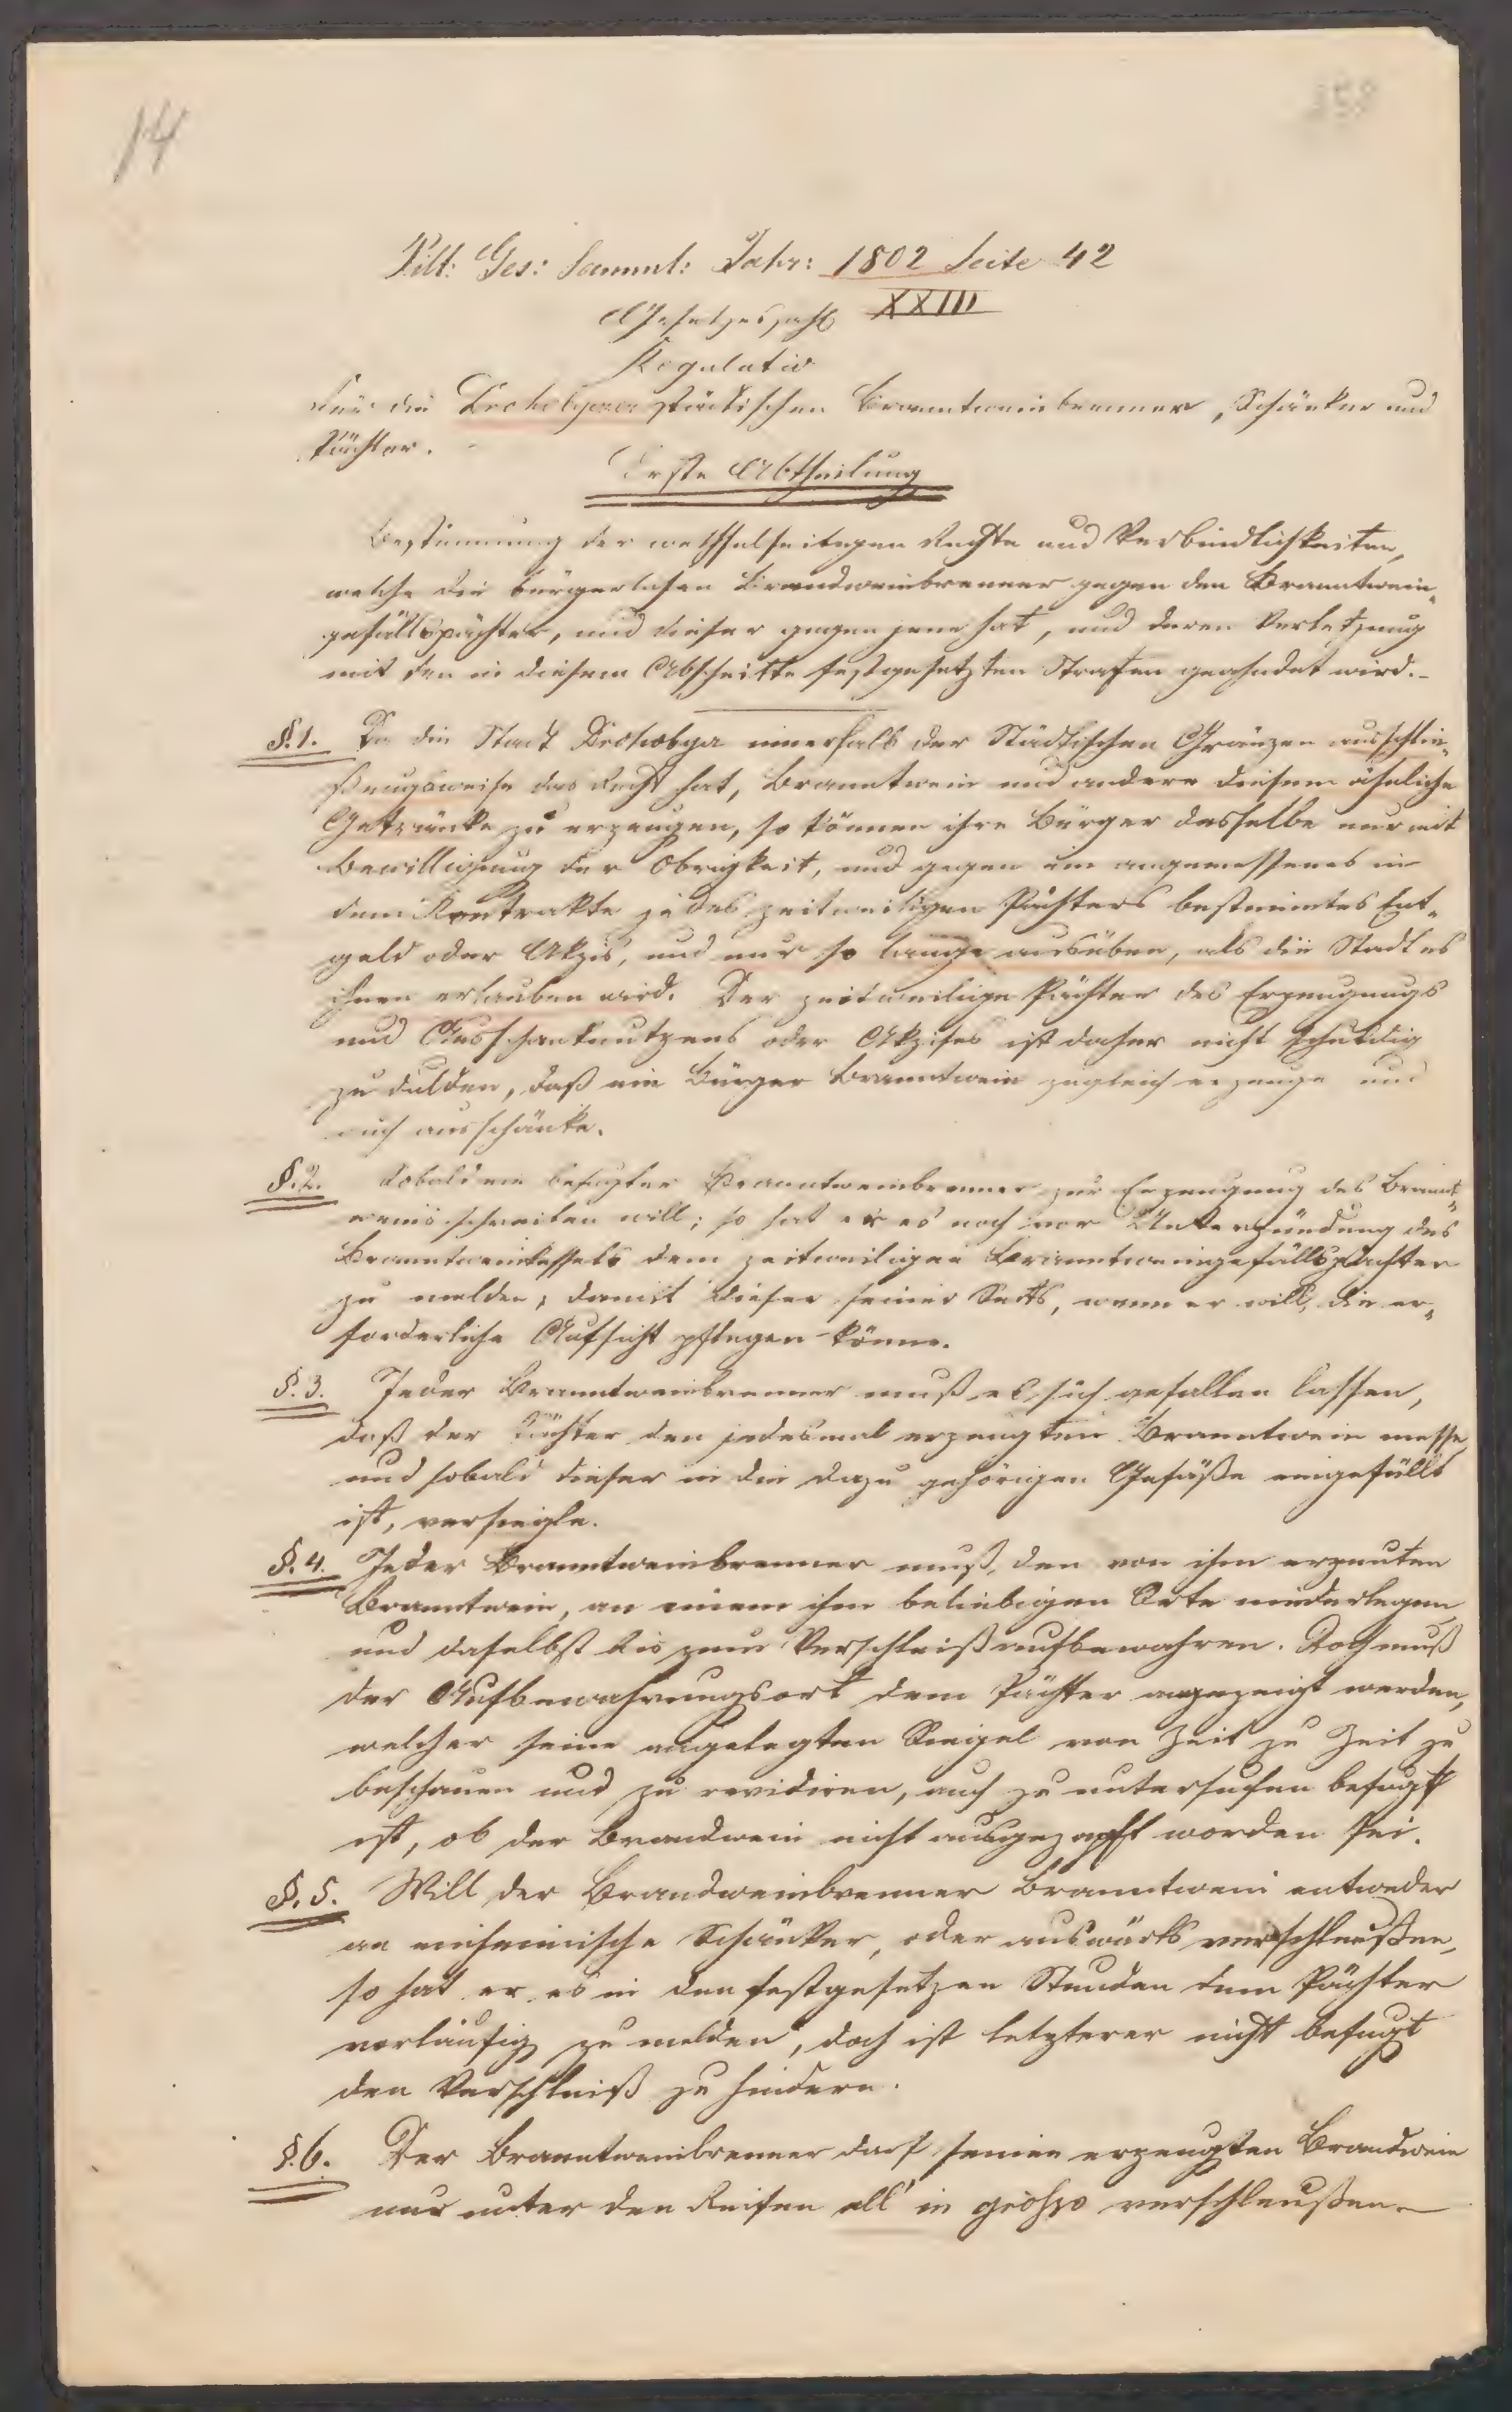 14
358
Pill: Ges: Samml: Jahr: 1802 Seite 42
Gesetzeszahl XXIII
Regulativ
Für die Drohobyczer städtischen Branntweinbrenner, Schänker und
Pächter.
Erste Abtheilung
Bestimmung der wechselseitigen Rechte und Verbindlichkeiten,
welche die bürgerlichen Brandweinbrenner gegen den Branntwein-
gefällspächter, und dieser gegen jene hat, und deren Verletzung
mit den in diesem Abschnitte festgesetzten Strafen geahndet wird.-
§.1. Da die Stadt Drohobycz innerhalb der Städtischen Gränzen ausschlie-
ßungsweise das Recht hat, Branntwein und andere diesem ähnliche
Getränke zu erzeugen, so können ihre Bürger dasselbe nur mit
Bewilligung der Obrigkeit, und gegen ein angemessenes in
dem Kontrakte jedes zeitweiligen Pächters bestimmtes Ent-
geld oder Akzis, und nur so lange ausüben, als die Stadt es
ihnen erlauben wird. Der zeitweilige Pächter des Erzeugungs
und Ausschanknutzens oder Akzises ist daher nicht schuldig
zu dulden, daß ein Bürger Branntwein zugleich erzeuge und
auch ausschänke.
§.2. Sobald ein befugter Branntweinbrenner zur Erzeugung des Brannt-
weins schreiten will; so hat er es noch vor Unterzündung des
Branntweinkessels dem zeitweiligen Branntweingefällspächter
zu melden, damit dieser seiner Seits, wenn er will, die er-
forderliche Aufsicht pflegen könne.
§.3. Jeder Branntweinbrenner muß es sich gefallen lassen,
daß der Pächter den jedesmal erzeugten Branntwein messe
und sobald dieser in die dazu gehörigen Gefäße eingefüllt
ist, versiegle.
§.4. Jeder Branntweinbrenner muß, den von ihm erzeuten
Branntwein, an einem ihm beliebigen Orte niederlegen,
und daselbst bis zum Verschleiß aufbewahren. Doch muß
der Aufbewahrungsort dem Pächter angezeigt werden,
welcher seine angelegten Siegel von Zeit zu Zeit zu
beschauen und zu revidiren, auch zu untersuchen befugt
ist, ob der Brandwein nicht ausgezapft worden sei.
§.5. Will der Brandweinbrenner Branntwein entweder
an einheimische Schänker, oder auswärts verschleußen,
so hat er es in den festgesetzen Stunden dem Pächter
vorläufig zu melden, doch ist letzterer nicht befugt
den Verschleiß zu hindern.
§.6. Der Branntweinbrenner darf seinen erzeugten Brandwein
nur unter den Reifen all' in grosso verschleußen.-